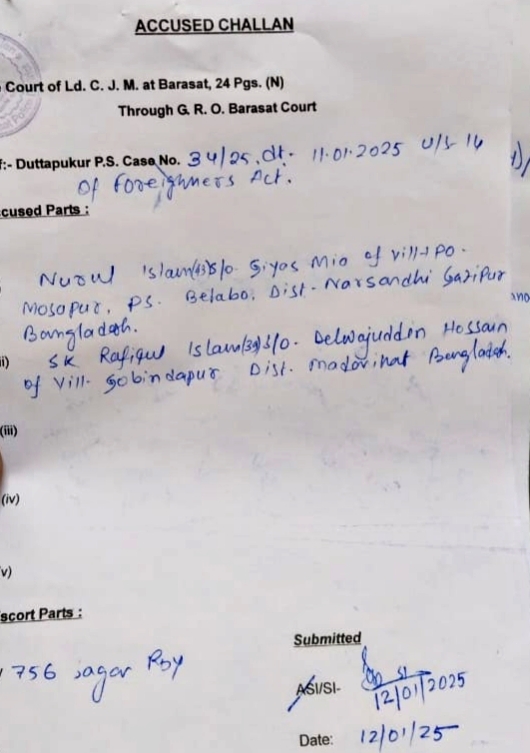 ACCUSED CHALLAN
Court of Ld. C. J. M. at Barasat, 24 Pgs. (N)
Through G. R. O. Barasat Court
f:- Duttapukur P.S. Case No. 34/25. dt. 11.01.2025 U/S-14
Of Foreighners Act.
ccused Parts :
Nurul Islam S/o. Giyas Mia of vill+Po-
Mosapur, PS. Belabo. Dist- Narsandhi Gazipur
Bangladesh.
ii) SK Rafiqul Islam S/o. Delwajuddin Hossain
of Vill- Gobindapur Dist. Bangladesh.
(iii)
(iv)
v)
scort Parts :
756 Sagar Roy
Submitted
ASI/SI- SI
12/01/2025
Date: 12/01/25